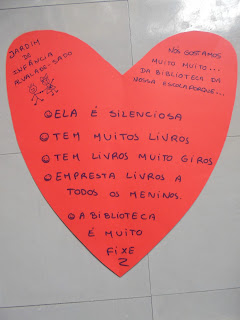 JARDIM
DE
INFÂNCIA
ALVALADE-SADO
NÓS GOSTAMOS
MUITO MUITO...
DA BIBLIOTECA DA
NOSSA ESCOLA PORQUE...
ELA É SILENCIOSA
TEM MUITOS LIVROS
TEM LIVROS MUITO GIROS
EMPRESTA LIVROS A
TODOS OS MENINOS.
A BIBLIOTECA
É MUITO
FIXE